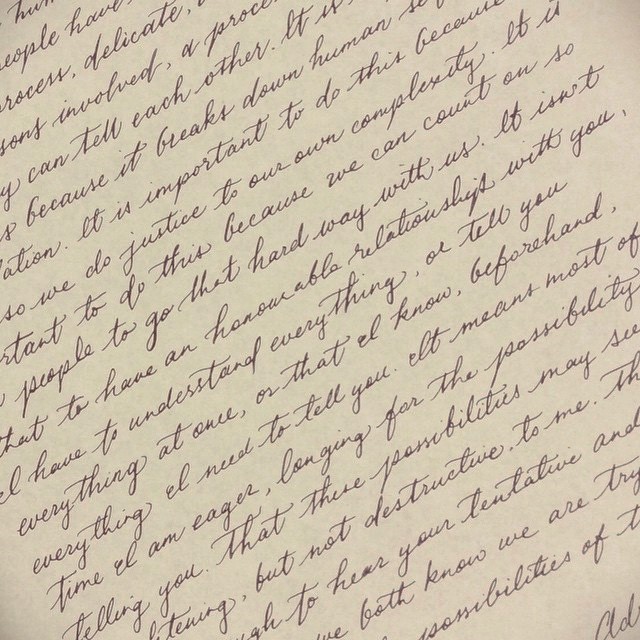 people have
process, delicate,
sons involved, a proce
y can tell each other. It is
s because it breaks down human se
ation. It is important to do this because
so we do justice to our own complexity. It is
rtant to do this because we can count on so
people to go that hard way with us. It isn't
that to have an honourable relationship with you,
I have to understand everything, or tell you
everything at once, or that I know, beforehand,
everything I need to tell you. It means most of
time I am eager, longing for the possibility
telling you. That these possibilities may see
tening, but not destructive, to me. Th
ugh to hear your tentative and
we both know we are try
possibilities of t
Ad